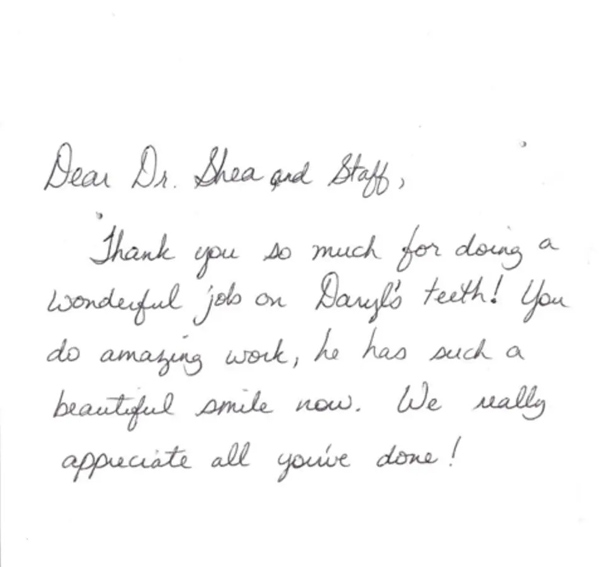 Dear Dr. Shea and Staff,
Thank you so much for doing a
wonderful job on Daryl's teeth! You
do amazing work, he has such a
beautiful smile now. We really
appreciate all you've done!